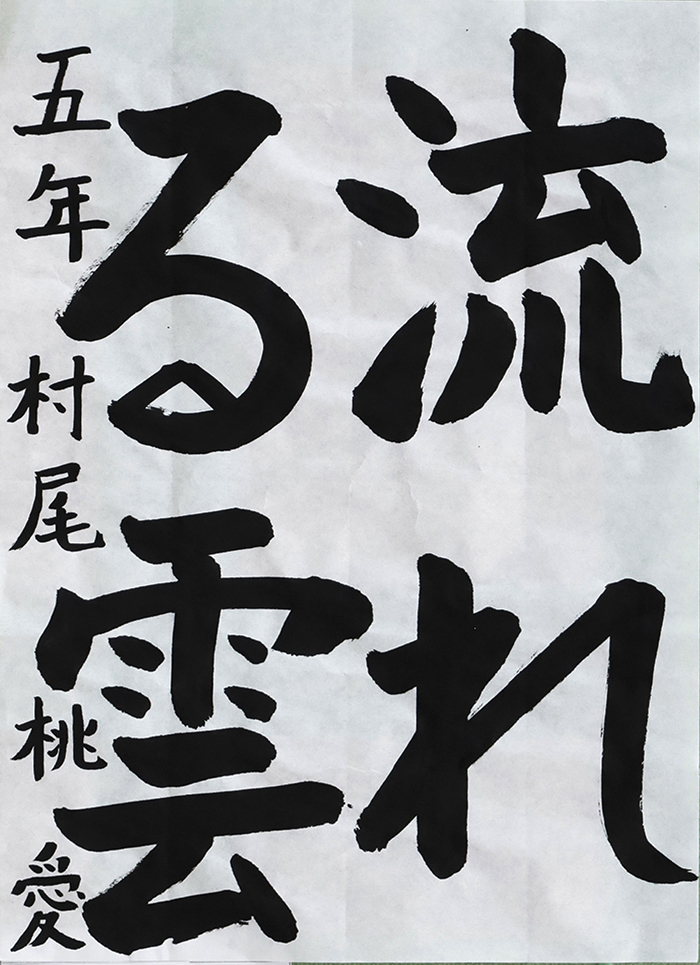 流れ
る雲
五年 村尾 桃愛